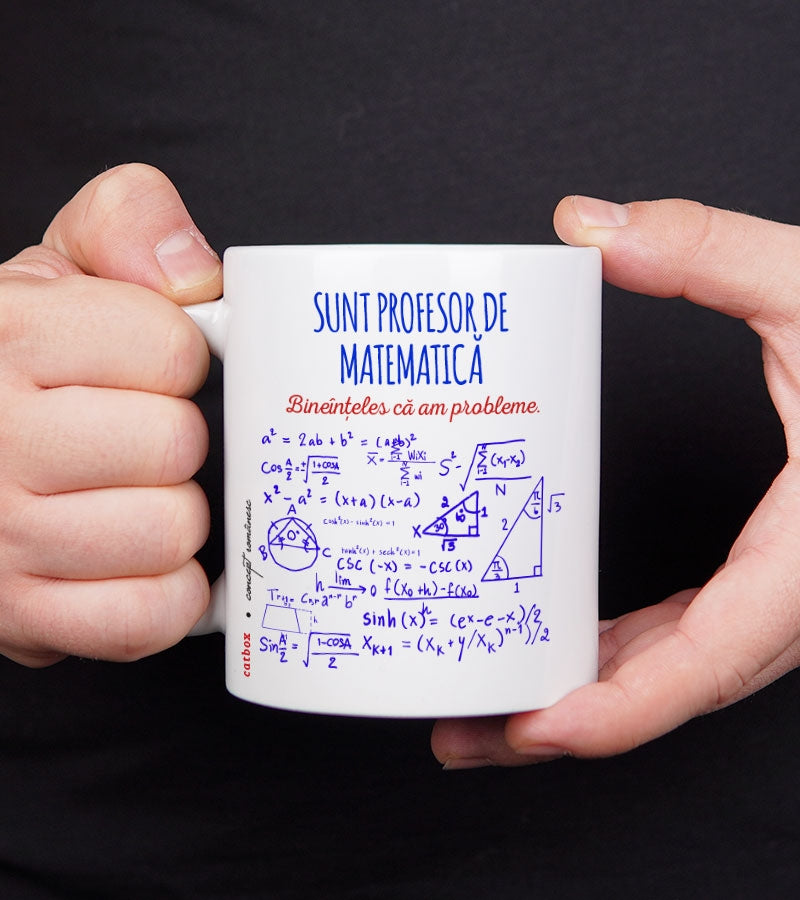 SUNT PROFESOR DE
MATEMATICĂ
Bineînțeles că am probleme.
a² = 2ab + b² = (a+b)²
Cos A/2 = ±√(1+COSA/2)
X̄ = Σ WiXi / Σ wi
S² - √(Σ (x₁-x₂) / N)
x² - a² = (x+a) (x-a)
A
B
C
O°
cosh²(x) - sinh²(x) = 1
X
2
1
30°
60°
√3
2
π/6
√3
π/3
1
tanh²(x) + sech²(x) = 1
CSC (-x) = -CSC (x)
h lim → 0 f(x₀ + h) - f(x₀)
Cn,r aⁿ⁻ʳ bʳ
h
sinh (x)ⁿ = (ex-e-x)/2
Sin A/2 = √(1-COSA/2)
X K+1 = (X K + y/X K)ⁿ⁻¹)/2
catbox • concept românesc